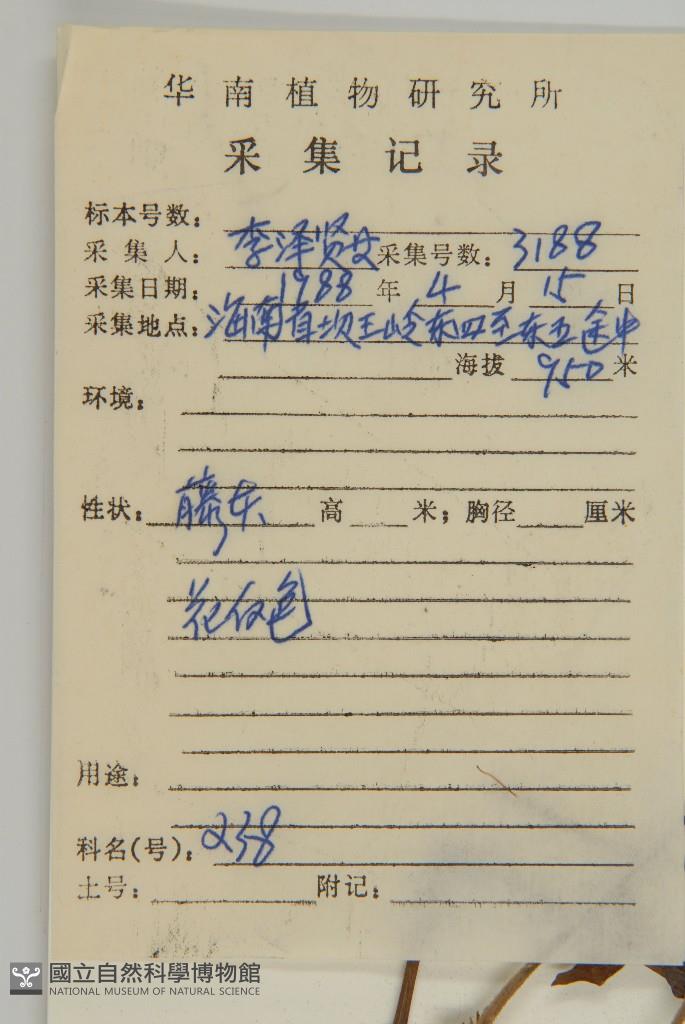 华南植物研究所
采集记录
标本号数：
采集人：李泽贤 采集号数：3188
采集日期：1988年4月15日
采集地点：海南省坝王岭东四至东五途中
海拔950米
环境：
性状：藤本 高 米；胸径 厘米
花红色
用途：
科名(号)：238
土号： 附记：
國立自然科學博物館
NATIONAL MUSEUM OF NATURAL SCIENCE